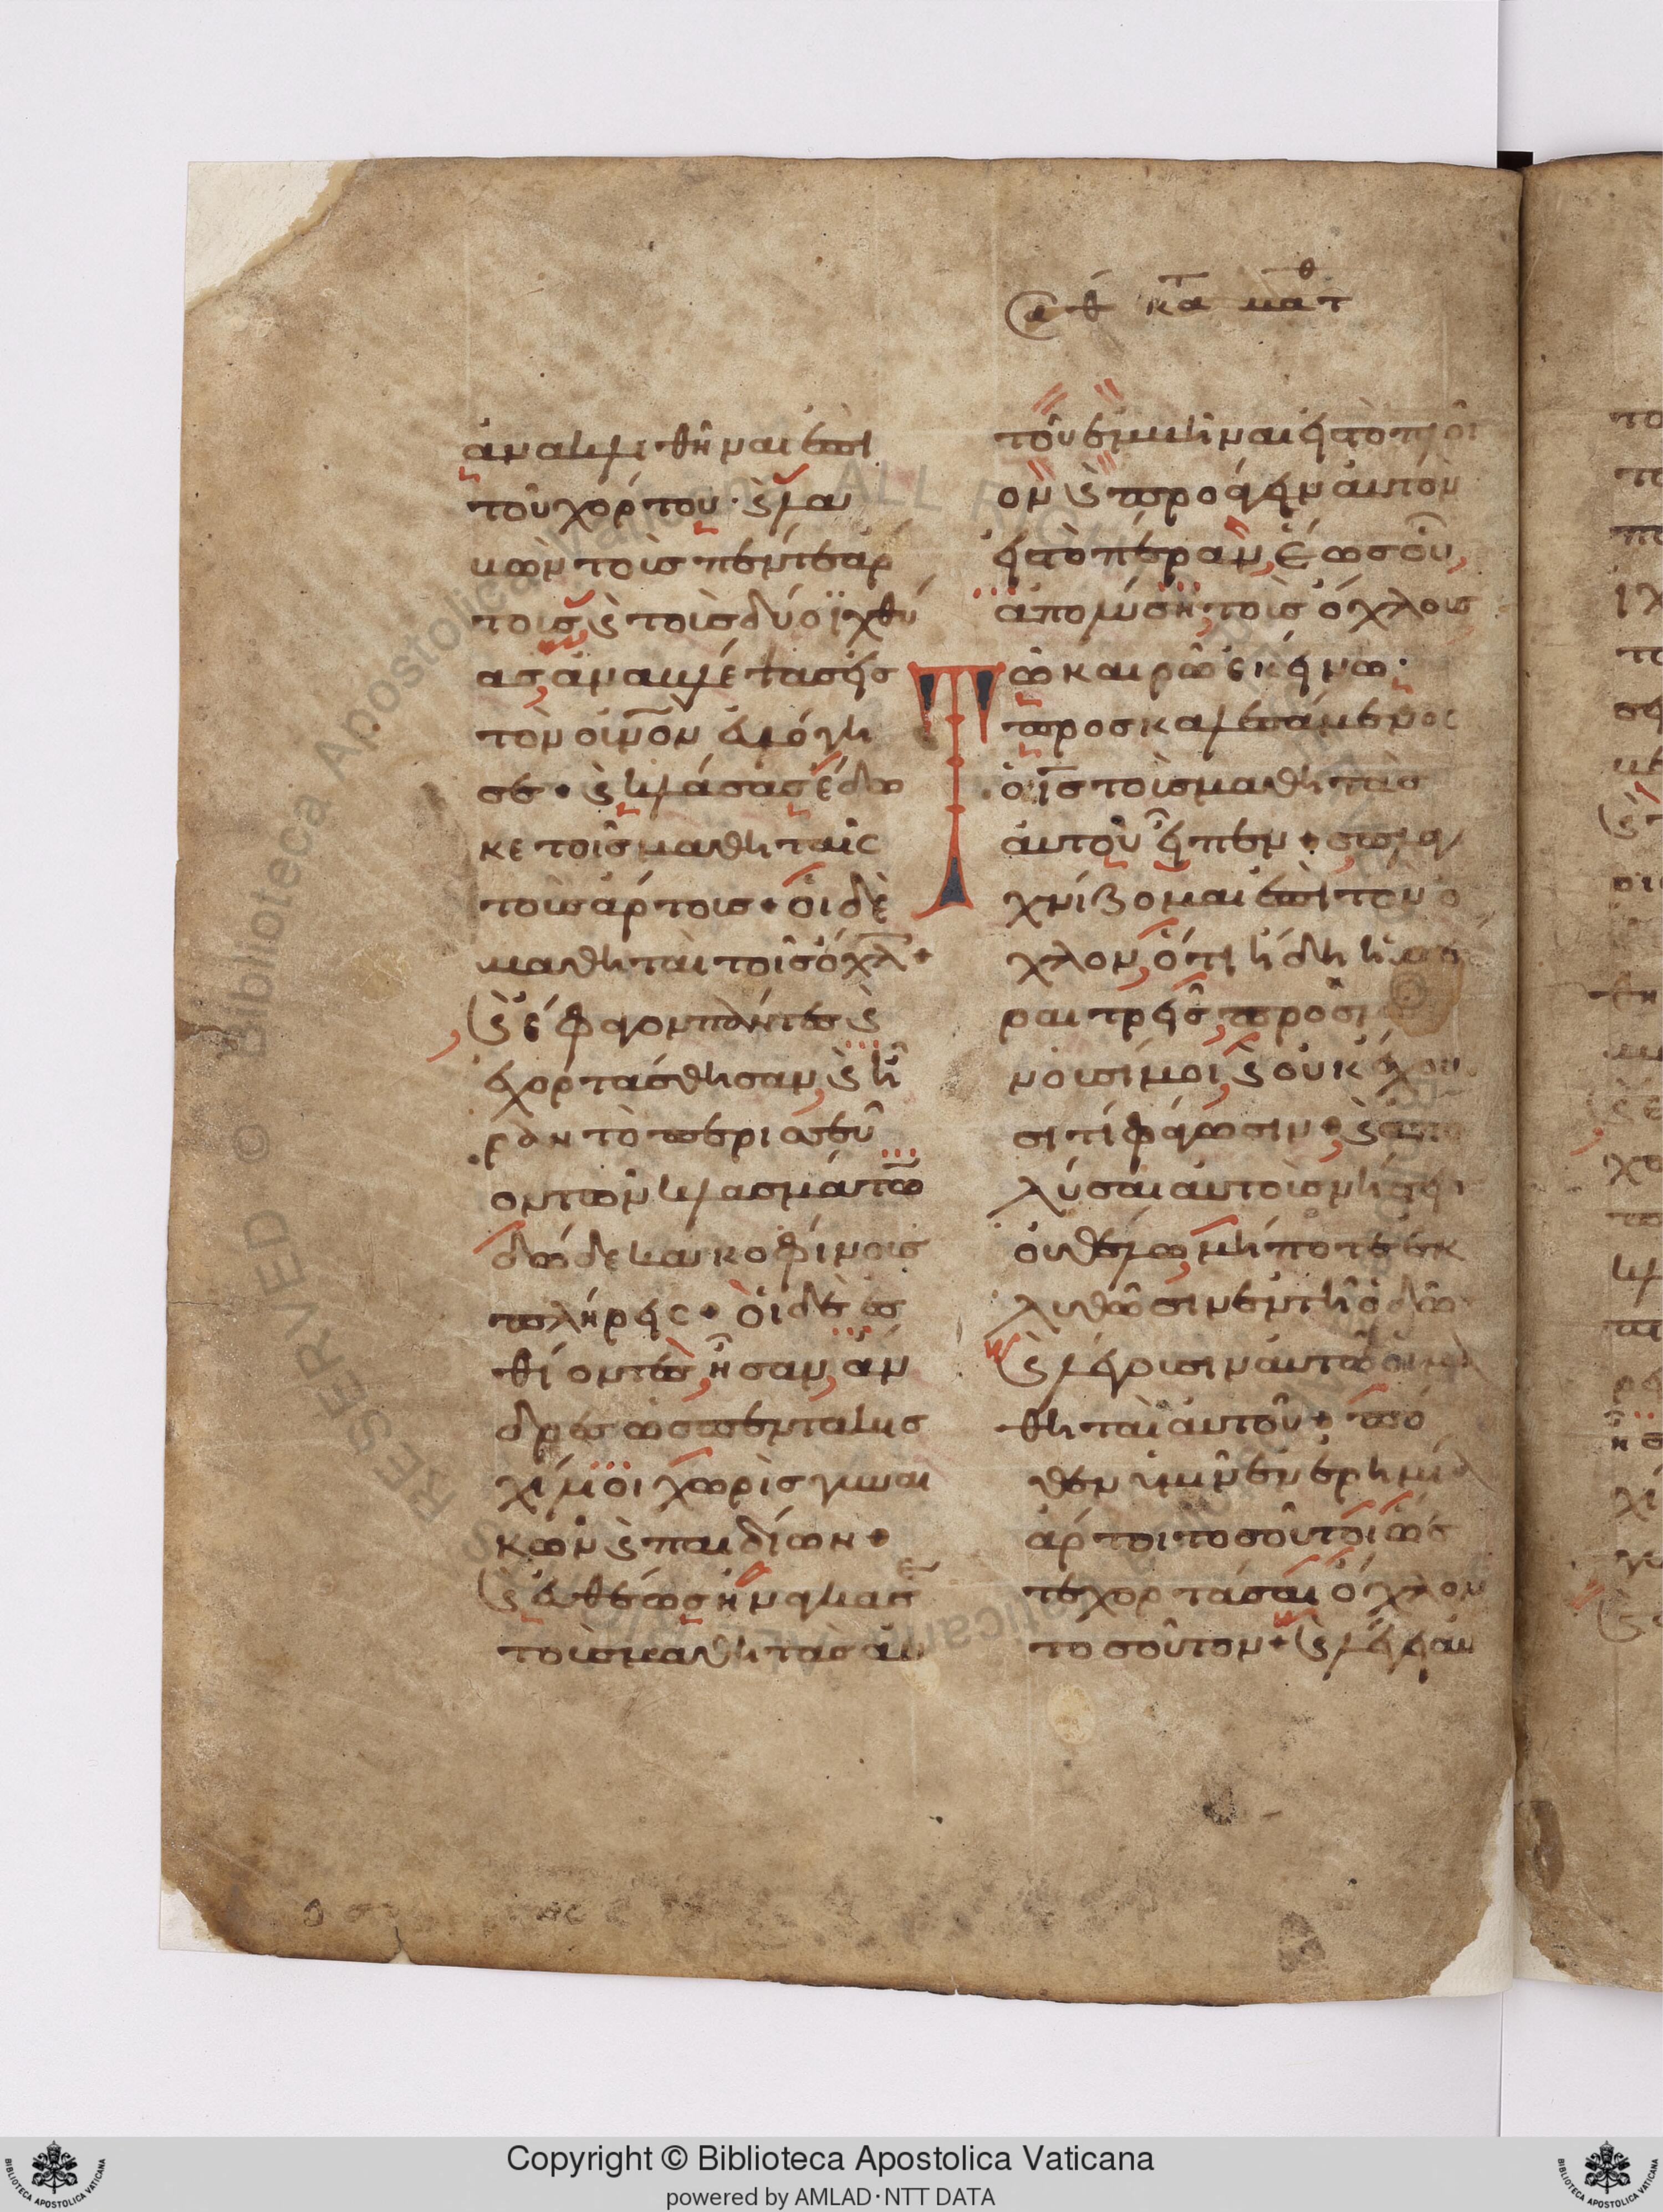 ἀνακλιθῆναι ἐπὶ
τοῦ χόρτου· ϗ λα
μὼν τοὺς πέντε ἀρ
τους ϗ τοὺς δύο ἰχθύ
ας ἀναβλέψας εἰς
τὸν οὐνον ἐυλόγη
σε· ϗ κλάσας ἔδω
κε τοῖς μαθηταῖς
τοὺς ἄρτους· οἱ δὲ
μαθηταὶ τοῖς ὄχλ·
ϗ ἔφαγον πάντες ϗ
ἐχορτάσθησαν ϗ ἦ
ραν τὸ περισσεῦ
ον τῶν κλασμάτω
δώδεκα κοφίνους
πλήρεις· οἱ δὲ ἐσ
θίοντες ἦσαν ἄν
δρες ὡσεὶ πεντακισ
χίλιοι χωρὶς γυναι
κῶν ϗ παιδίων·
ϗ ἐυθέως ἠνάγκασε
τοὺς μαθητὰς αὐ
κτα ματθ
τοῦ ἐμβῆναι εἰς τὸ πλοῖ
ον ϗ προάγειν αὐτὸν
εἰς τὸ πέραν ἕως οὗ
ἀπολύσῃ τοὺς ὄχλους
Τῶ καιρῶ ἐκείνω·
προσκαλεσάμενος
ὁ ις τοὺς μαθητὰς
αὐτοῦ εἶπεν· σπλαγ
χνίζομαι ἐπὶ τὸν ὄ
χλον ὅτι ἤδη ἡμέ
ραι τρεῖς προσμέ
νουσί μοι ϗ οὐκ ἔχου
σι τί φάγωσιν· ϗ ἀπο
λύσαι αὐτοὺς νήστεις
οὐ θέλω μήποτε ἐκ
λυθῶσιν ἐν τῆ ὁδῶ
ϗ λέγουσιν αὐτῶ οἱ μα
θηταὶ αὐτοῦ· πό
θεν ἡμῖν ἐν ἐρημία
ἄρτοι τοσοῦτοι ὥσ
τε χορτάσαι ὄχλον
τοσοῦτον· ϗ λέγει αὐ